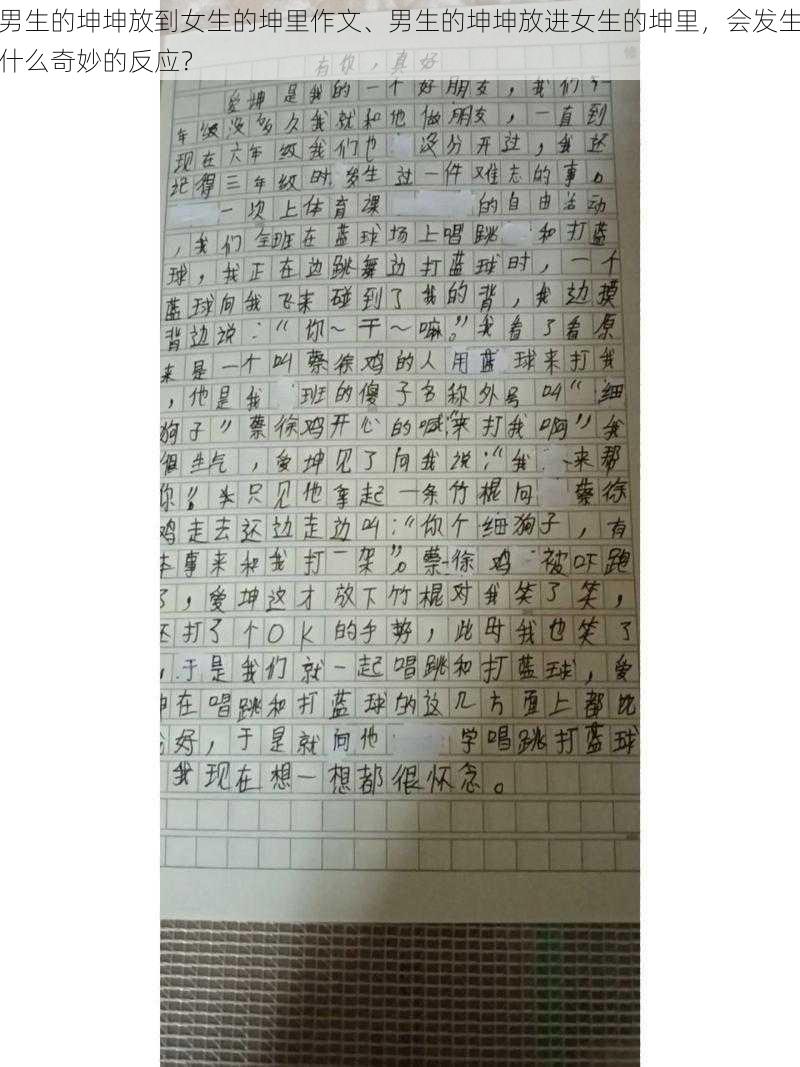 男生的坤坤放到女生的坤里作文、男生的坤坤放进女生的坤里，会发生
什么奇妙的反应？
有你，真好
爱坤是我的一个好朋友，我们一
年级没多久我就和他做朋友，一直到
现在六年级我们也 没分开过，我还
记得三年级时发生过一件难忘的事。
一次上体育课 的自由活动
，我们全班在蓝球场上唱跳 和打蓝
球，我正在边跳舞边打蓝球时，一个
蓝球向我飞来碰到了我的背，我边摸
背边说：“你～干～嘛。”我看了看原
来是一个叫蔡徐鸡的人用蓝球来打我
，他是我 班的傻子名称外号叫“细
狗子”蔡徐鸡开心的喊“来打我啊”我
很生气，爱坤见了向我说：“我 来帮
你”。只见他拿起一条竹棍向 蔡徐
鸡走去还边走边叫：“你个细狗子，有
本事来和我打一架”。蔡徐鸡 被吓跑
了，爱坤这才放下竹棍对我笑了笑，
还打了个OK的手势，此时我也笑了
，于是我们就一起唱跳和打蓝球，爱
坤在唱跳和打蓝球的这几方面上都比
我好，于是就向他 学唱跳打蓝球
我现在想一想都很怀念。